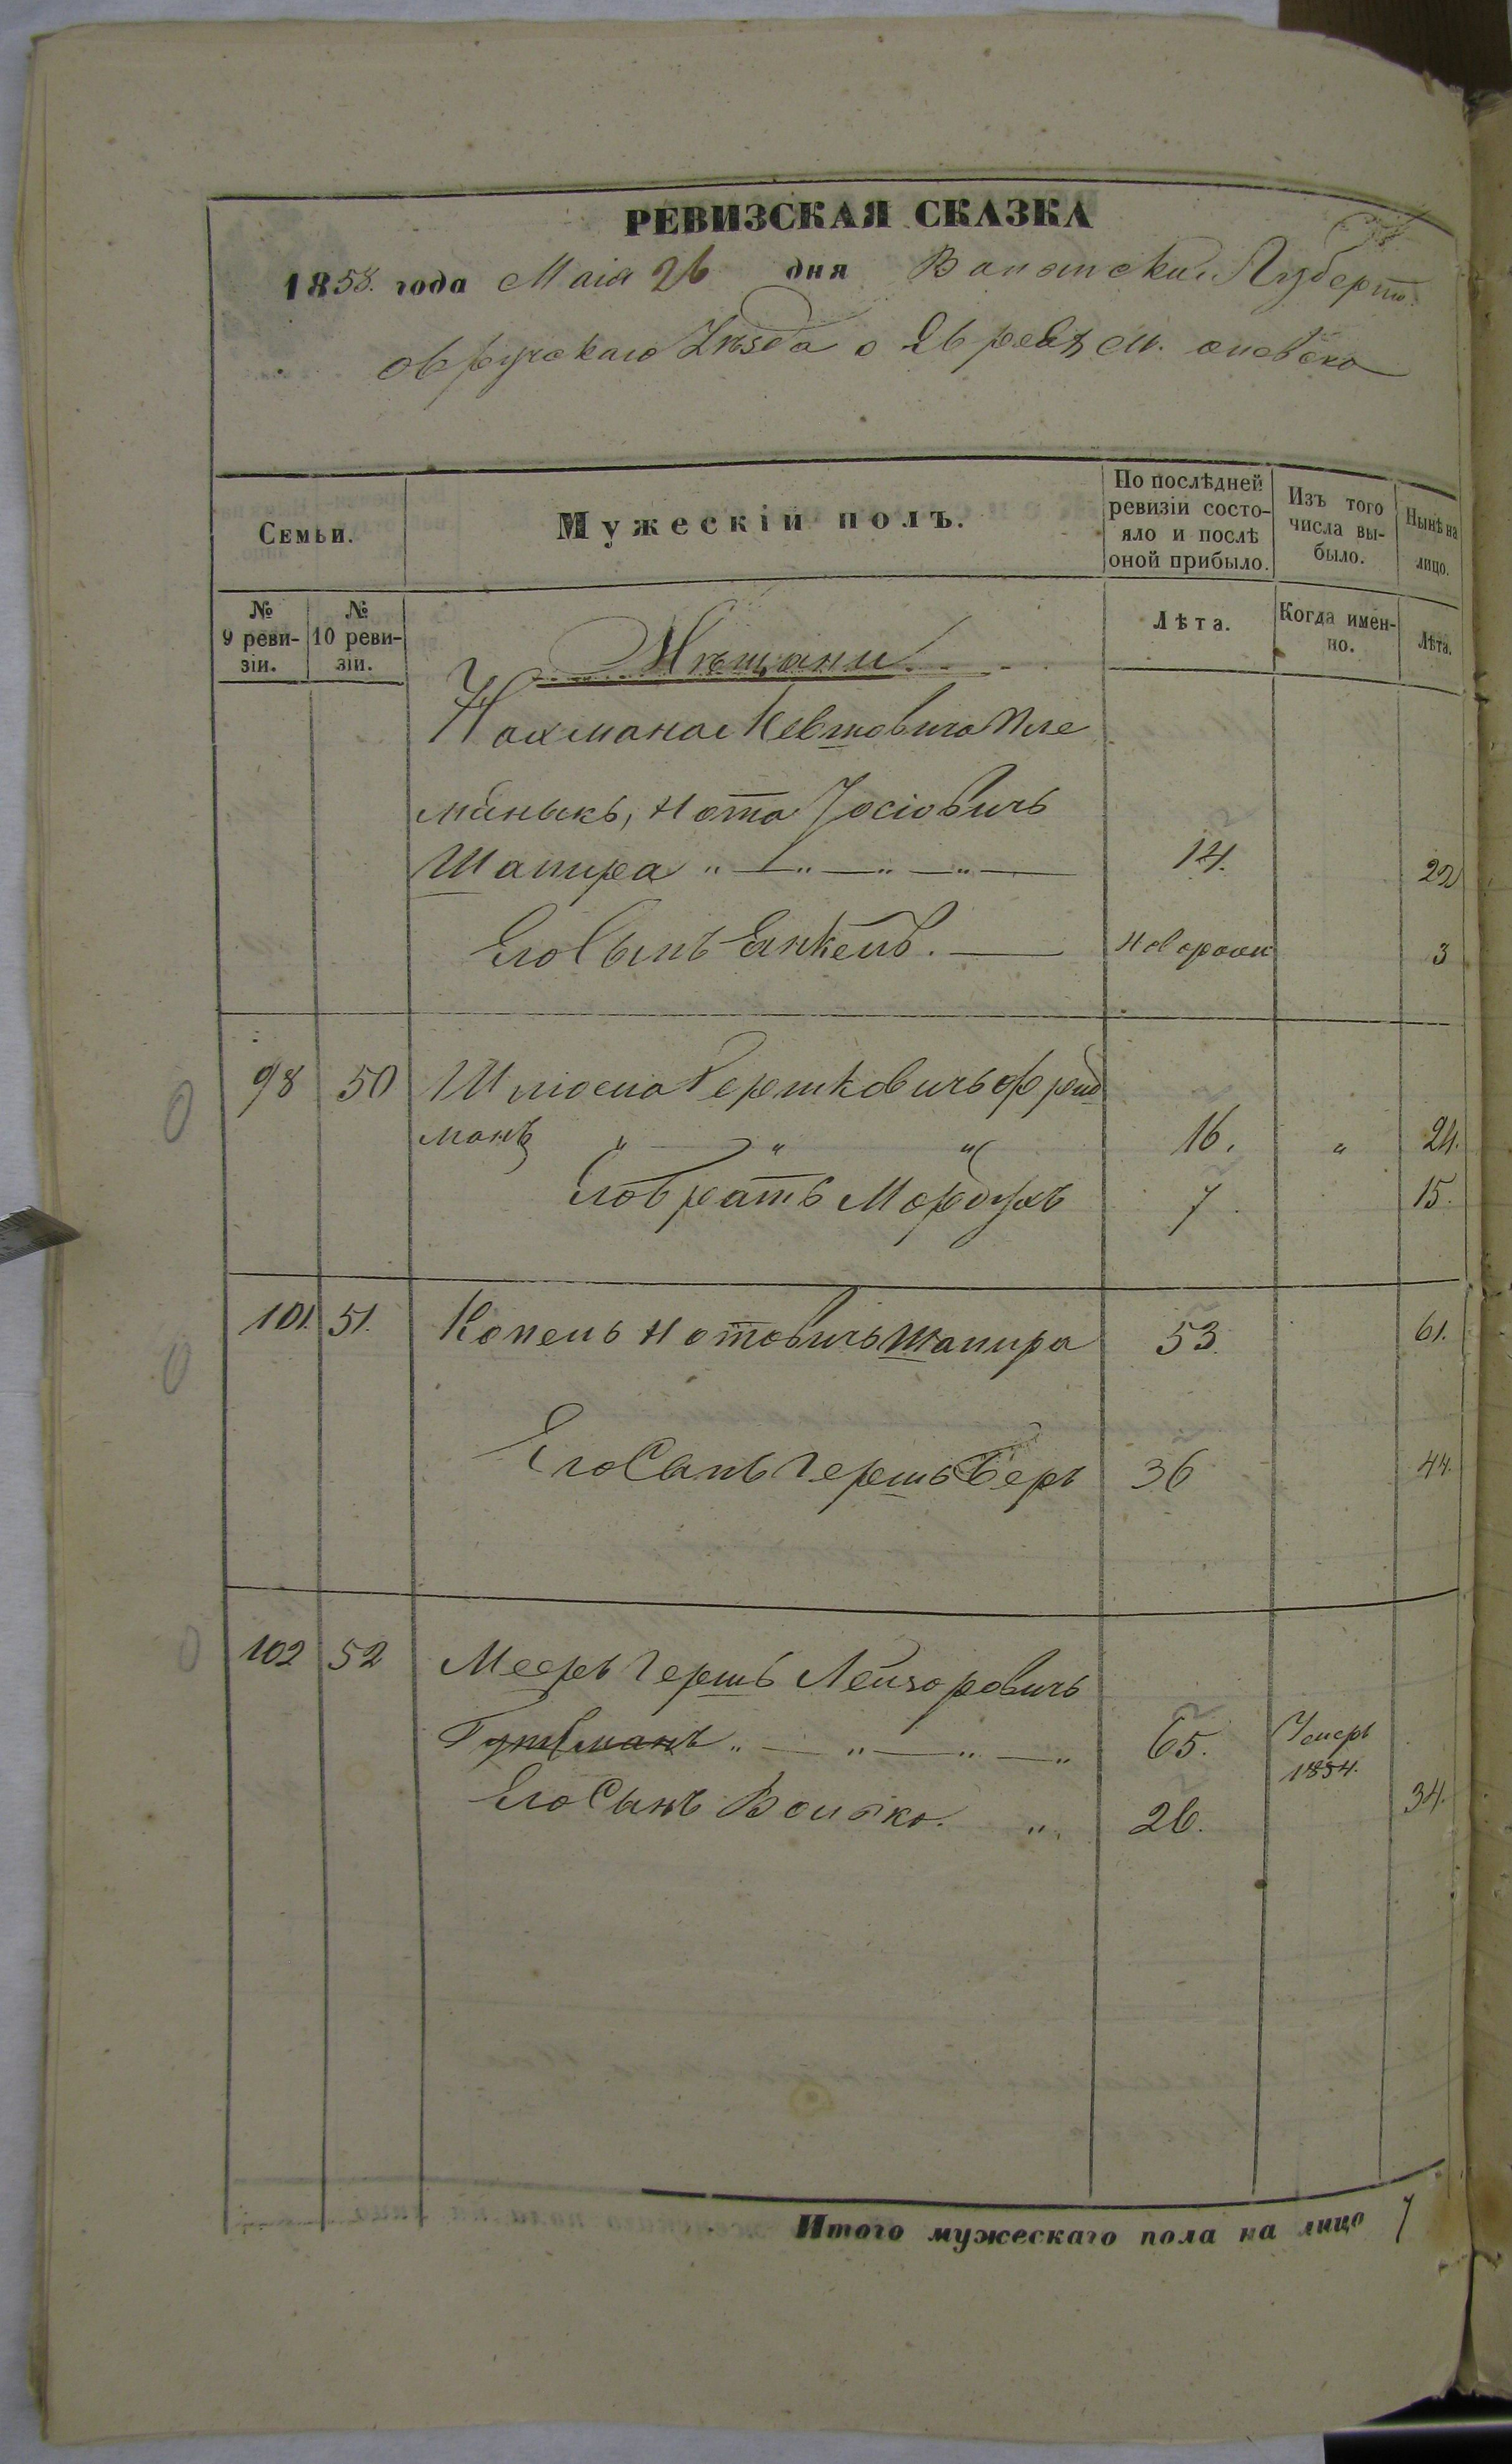 РЕВИЗСКАЯ СКАЗКА
1858. года Маія 26 дня Волынской Губерніи
Овручскаго Уѣзда о Евреяхъ м. Олевска
Семьи.
Мужескій полъ.
По послѣдней ревизіи состояло и послѣ оной прибыло.
Изъ того числа выбыло.
Нынѣ на лицо.
№ 9 ревизіи.
№ 10 ревизіи.
Лѣта.
Когда именно.
Лѣта.
Мѣщани
Нахмана Пле
мянныкъ, Нота Йосіовичъ
Шапира " — " — " — " — 14. 22
Его Сынъ Янкель. — новорож 3
98 50 Шліома Гершковичъ Фрид
манъ " — " " 16. " 24.
Его братъ Мордухъ 7 15.
101. 51. Копель Нотовичъ Шапира 53. 61.
Его Сынъ Гершъ Беръ 36 44.
102 52 Мееръ Гершъ Лейзоровичъ
Гутманъ " — " — " — " 65. Умеръ 1854.
Его Сынъ Волько. " 26. 34.
Итого мужескаго пола на лицо 7